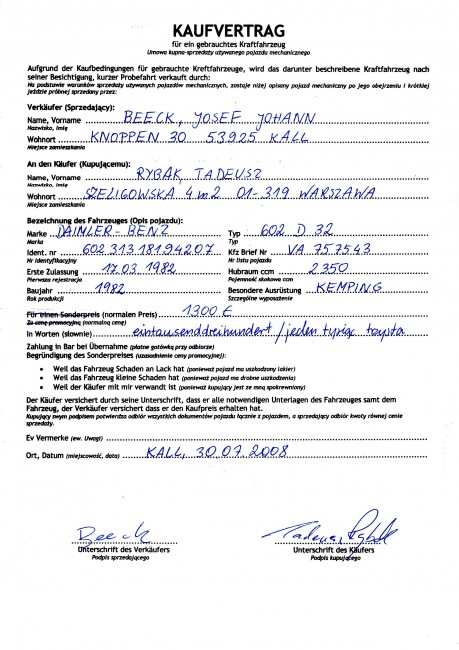 KAUFVERTRAG
für ein gebrauchtes Kraftfahrzeug
Umowa kupna-sprzedaży używanego pojazdu mechanicznego
Aufgrund der Kaufbedingungen für gebrauchte Kreftfahrzeuge, wird das darunter beschreibene Kraftfahrzeug nach
seiner Besichtigung, kurzer Probefahrt verkauft durch:
Na podstawie warunków sprzedaży używanych pojazdów mechanicznych, zostaje niżej opisany pojazd mechaniczny po jego obejrzeniu i krótkiej
jeździe próbnej sprzedany przez:
Verkäufer (Sprzedający):
Name, Vorname BEECK, JOSEF JOHANN
Nazwisko, imię
Wohnort KNOPPEN 30 53925 KALL
Miejsce zamieszkania
An den Käufer (Kupującemu):
Name, Vorname RYBAK, TADEUSZ
Nazwisko, imię
Wohnort SZELIGOWSKA 4 m 2 01-319 WARSZAWA
Miejsce zamieszkania
Bezeichnung des Fahrzeuges (Opis pojazdu):
Marke DAIMLER-BENZ Typ 602 D 32
Marka Typ
Ident. nr 602 313 181 94207 Kfz Brief Nr VA 757543
Nr identyfikacyjny Nr listu pojazdu
Erste Zulassung 17.03.1982 Hubraum ccm 2350
Pierwsza rejestracja Pojemność skokowa ccm
Baujahr 1982 Besondere Ausrüstung KEMPING
Rok produkcji Szczególne wyposażenie
Für einen Sonderpreis (normalen Preis) 1300 €
Za cenę promocyjną (normalną cenę)
in Worten (słownie) eintausenddreihundert / jeden tysiąc trzysta
Zahlung in Bar bei Übernahme (płatne gotówką przy odbiorze)
Begründigung des Sonderpreises (uzasadnienie ceny promocyjnej):
• Weil das Fahrzeug Schaden an Lack hat (ponieważ pojazd ma uszkodzony lakier)
• Weil das Fahrzeug kleine Schaden hat (ponieważ pojazd ma drobne uszkodzenia)
• Weil der Käufer mit mir verwandt ist (ponieważ kupujący jest ze mną spokrewniony)
Der Käufer versichert durch seine Unterschrift, dass er alle notwendigen Unterlagen des Fahrzeuges samt dem
Fahrzeug, der Verkäufer versichert dass er den Kaufpreis erhalten hat.
Kupujący swym podpisem potwierdza odbiór wszystkich dokumentów pojazdu łącznie z pojazdem, a sprzedający odbiór kwoty równej cenie
sprzedaży.
Ev Vermerke (ew. Uwagi)
Ort, Datum (miejscowość, data) KALL, 30.07.2008
Beeck Tadeusz Rybak
Unterschrift des Verkäufers Unterschrift des Käufers
Podpis sprzedającego Podpis kupującego